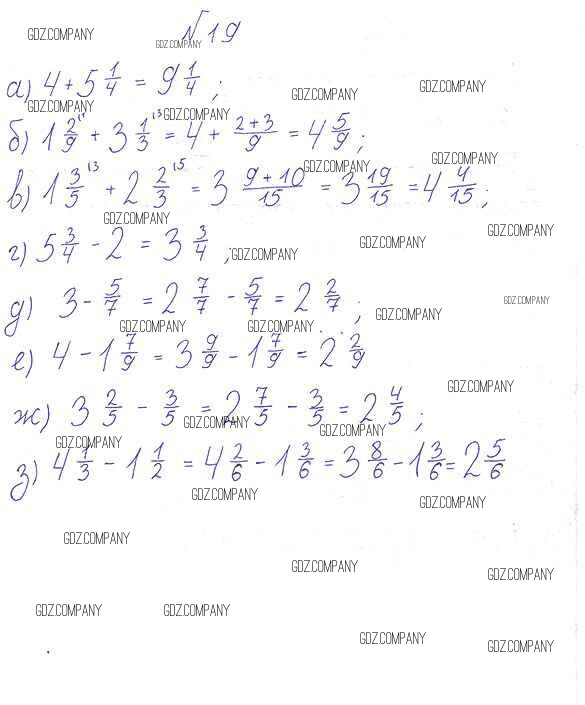 №19
GDZ.COMPANY
GDZ.COMPANY
а) 4 + 5 1/4 = 9 1/4 ;
GDZ.COMPANY
GDZ.COMPANY
GDZ.COMPANY
GDZ.COMPANY
б) 1 2/9 + 3 1/3 = 4 + (2+3)/9 = 4 5/9 ;
GDZ.COMPANY
GDZ.COMPANY
в) 1 3/5 + 2 2/3 = 3 (9+10)/15 = 3 19/15 = 4 4/15 ;
GDZ.COMPANY
GDZ.COMPANY
г) 5 3/4 - 2 = 3 3/4 ;
GDZ.COMPANY
GDZ.COMPANY
д) 3 - 5/7 = 2 7/7 - 5/7 = 2 2/7 ;
GDZ.COMPANY
GDZ.COMPANY
GDZ.COMPANY
GDZ.COMPANY
е) 4 - 1 7/9 = 3 9/9 - 1 7/9 = 2 2/9
GDZ.COMPANY
ж) 3 2/5 - 3/5 = 2 7/5 - 3/5 = 2 4/5 ;
GDZ.COMPANY
GDZ.COMPANY
GDZ.COMPANY
з) 4 1/3 - 1 1/2 = 4 2/6 - 1 3/6 = 3 8/6 - 1 3/6 = 2 5/6
GDZ.COMPANY
GDZ.COMPANY
GDZ.COMPANY
GDZ.COMPANY
GDZ.COMPANY
GDZ.COMPANY
GDZ.COMPANY
GDZ.COMPANY
GDZ.COMPANY